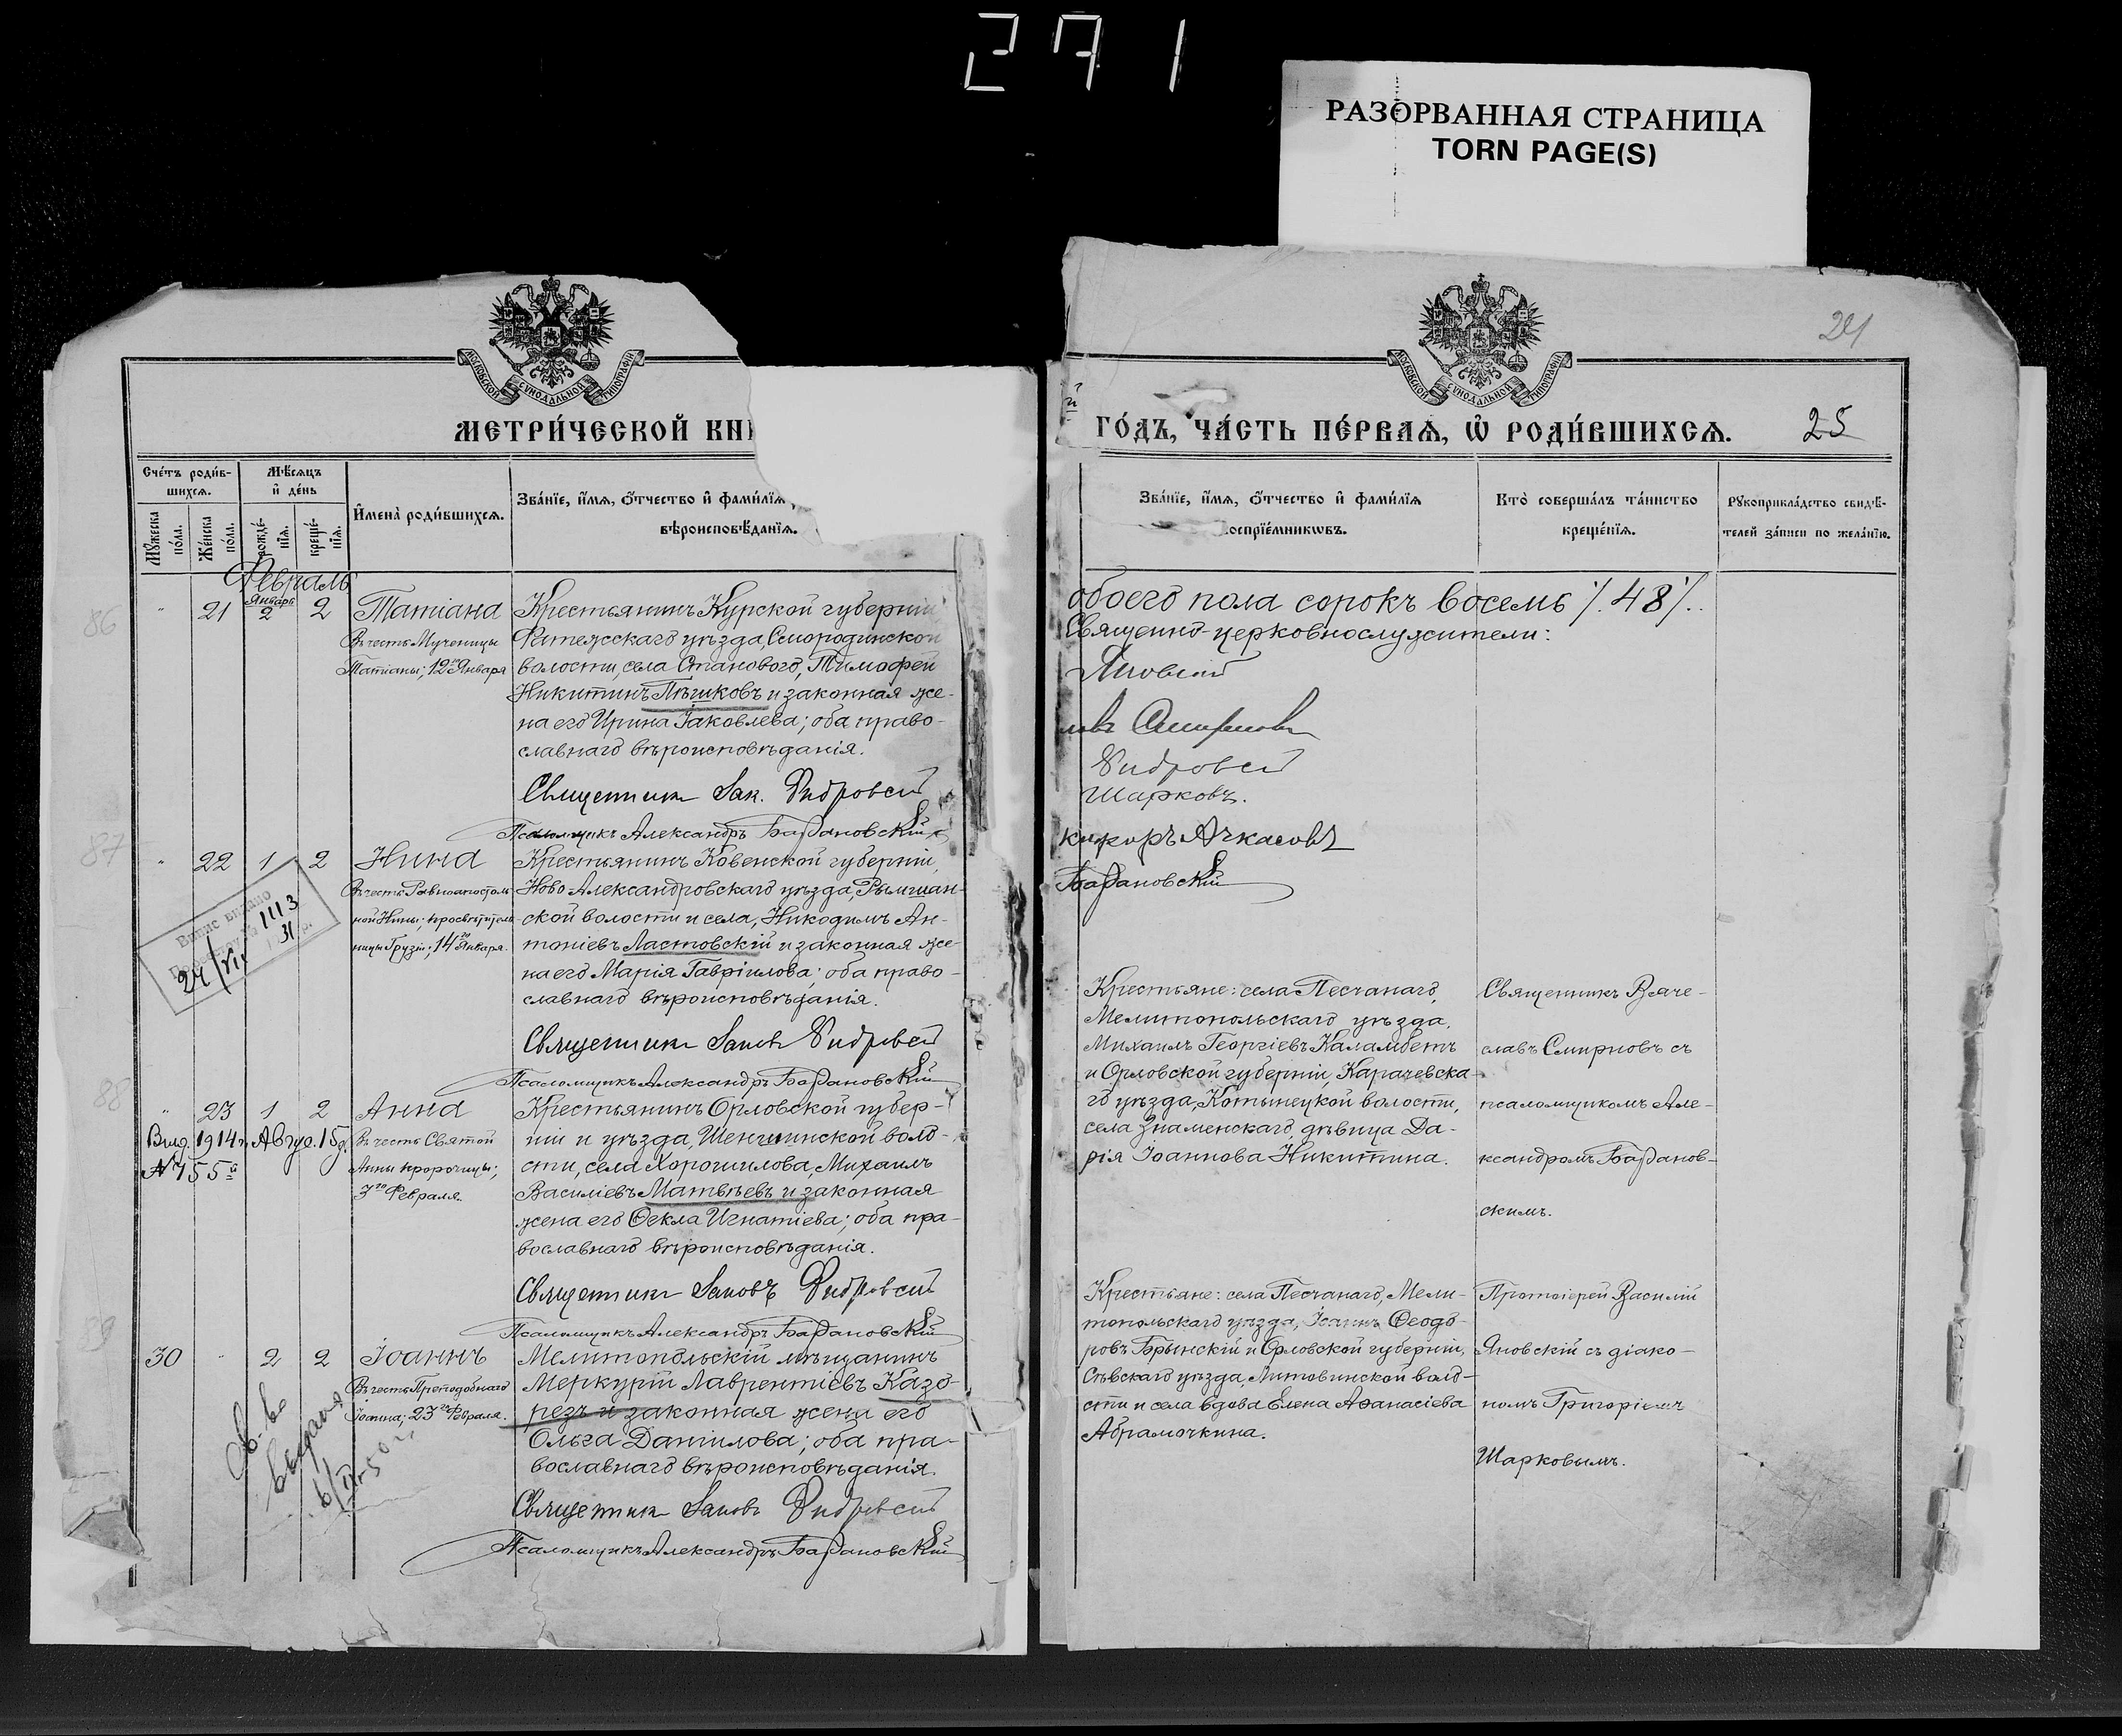 271
РАЗОРВАННАЯ СТРАНИЦА
TORN PAGE(S)
МОСКОВСКОЙ СУНОДАЛЬНОЙ ТИПОГРАФІИ
МЕТРИ́ЧЕСКОЙ КНИ
Сче́тъ роди́в-
шихсѧ.
Мѣ́сѧцъ
и҆ де́нь
Мꙋ́жеска по́ла.
Же́нска по́ла.
рожде́-нїѧ.
креще́-нїѧ.
И҆мена̀ роди́вшихсѧ.
Зва́нїе, и҆́мѧ, ѻ҆́тчество и҆ фами́лїѧ
вѣроисповѣ́данїѧ.
Февраль
86
21
Январь
2
2
Татіана
Въ честь Мученицы
Татіаны; 12го Января
Крестьянинъ Курской губерніи,
Фатежскаго уѣзда, Смородинской
волости, села Станового, Тимофей
Никитинъ Пѣшковъ и законная же-
на его Ирина Іаковлева; оба право-
славнаго вѣроисповѣданія.
Священникъ Іак.
Псаломщикъ Александръ Багдановскій
87
22
1
2
Нина
Въ честь Равноапостоль
ной Нины; просвѣтитель
ницы Грузіи; 14го Января.
Крестьянинъ Ковенской губерніи,
Ново Александровскаго уѣзда, Рымшан-
ской волости и села, Никодимъ Ан-
тоніевъ Ластовскій и законная же-
на его Марія Гавріилова; оба право-
славнаго вѣроисповѣданія.
1113
31
24/VII
Священникъ Іаковъ
Псаломщикъ Александръ Багдановскій
88
23
1
2
Анна
Въ честь Святой
Анны пророчицы;
3го Февраля.
Выд. 1914 г. Авгус. 15 д.
№ 755
Крестьянинъ Орловской губер-
ніи и уѣзда, Шеншинской воло-
сти, села Хорошилова, Михаилъ
Василіевъ Матвѣевъ и законная
жена его Ѳекла Игнатіева; оба пра-
вославнаго вѣроисповѣданія.
Священникъ Іаковъ
Псаломщикъ Александръ Багдановскій
89
30
2
2
Іоаннъ
Въ честь Преподобнаго
Іоанна; 23го Февраля.
Св-во
выдано
Мелитопольскій мѣщанинъ
Меркурій Лаврентіевъ Казо-
резъ и законная жена его
Ольга Даніилова; оба пра-
вославнаго вѣроисповѣданія.
Священникъ Іаковъ
Псаломщикъ Александръ Багдановскій
24
МОСКОВСКОЙ СУНОДАЛЬНОЙ ТИПОГРАФІИ
ГО́ДЪ, ЧА́СТЬ ПЕ́РВАѦ, Ѡ҆ РОДИ́ВШИХСѦ.
25
Зва́нїе, и҆́мѧ, ѻ҆́тчество и҆ фами́лїѧ
оспрїе́мникѡвъ.
Кто̀ соверша́лъ та́инство
креще́нїѧ.
Рꙋкоприкла́дство свидѣ́-
телей за́писи по жела́нїю.
обоего пола сорокъ восемь /. 48 /.
Священно-церковнослужители:
Яновскій
лавъ Смирновъ
Шарковъ.
Ачкасовъ
Багдановскій
Крестьяне: села Песчанаго,
Мелитопольскаго уѣзда,
Михаилъ Георгіевъ Каламбетъ
и Орловской губерніи, Карачевска-
го уѣзда, Котынецкой волости,
села Знаменскаго, дѣвица Да-
рія Іоаннова Никитина.
Священникъ Вяче-
славъ Смирновъ съ
псаломщикомъ Але-
ксандромъ Багданов-
скимъ.
Крестьяне: села Песчанаго, Мели-
топольскаго уѣзда, Іоаннъ Ѳеодо-
ровъ Брынскій и Орловской губерніи,
Сѣвскаго уѣзда, Литовинской воло-
сти и села вдова Елена Аѳанасіева
Абрамочкина.
Протоіерей Василій
Яновскій съ діако-
номъ Григоріемъ
Шарковымъ.